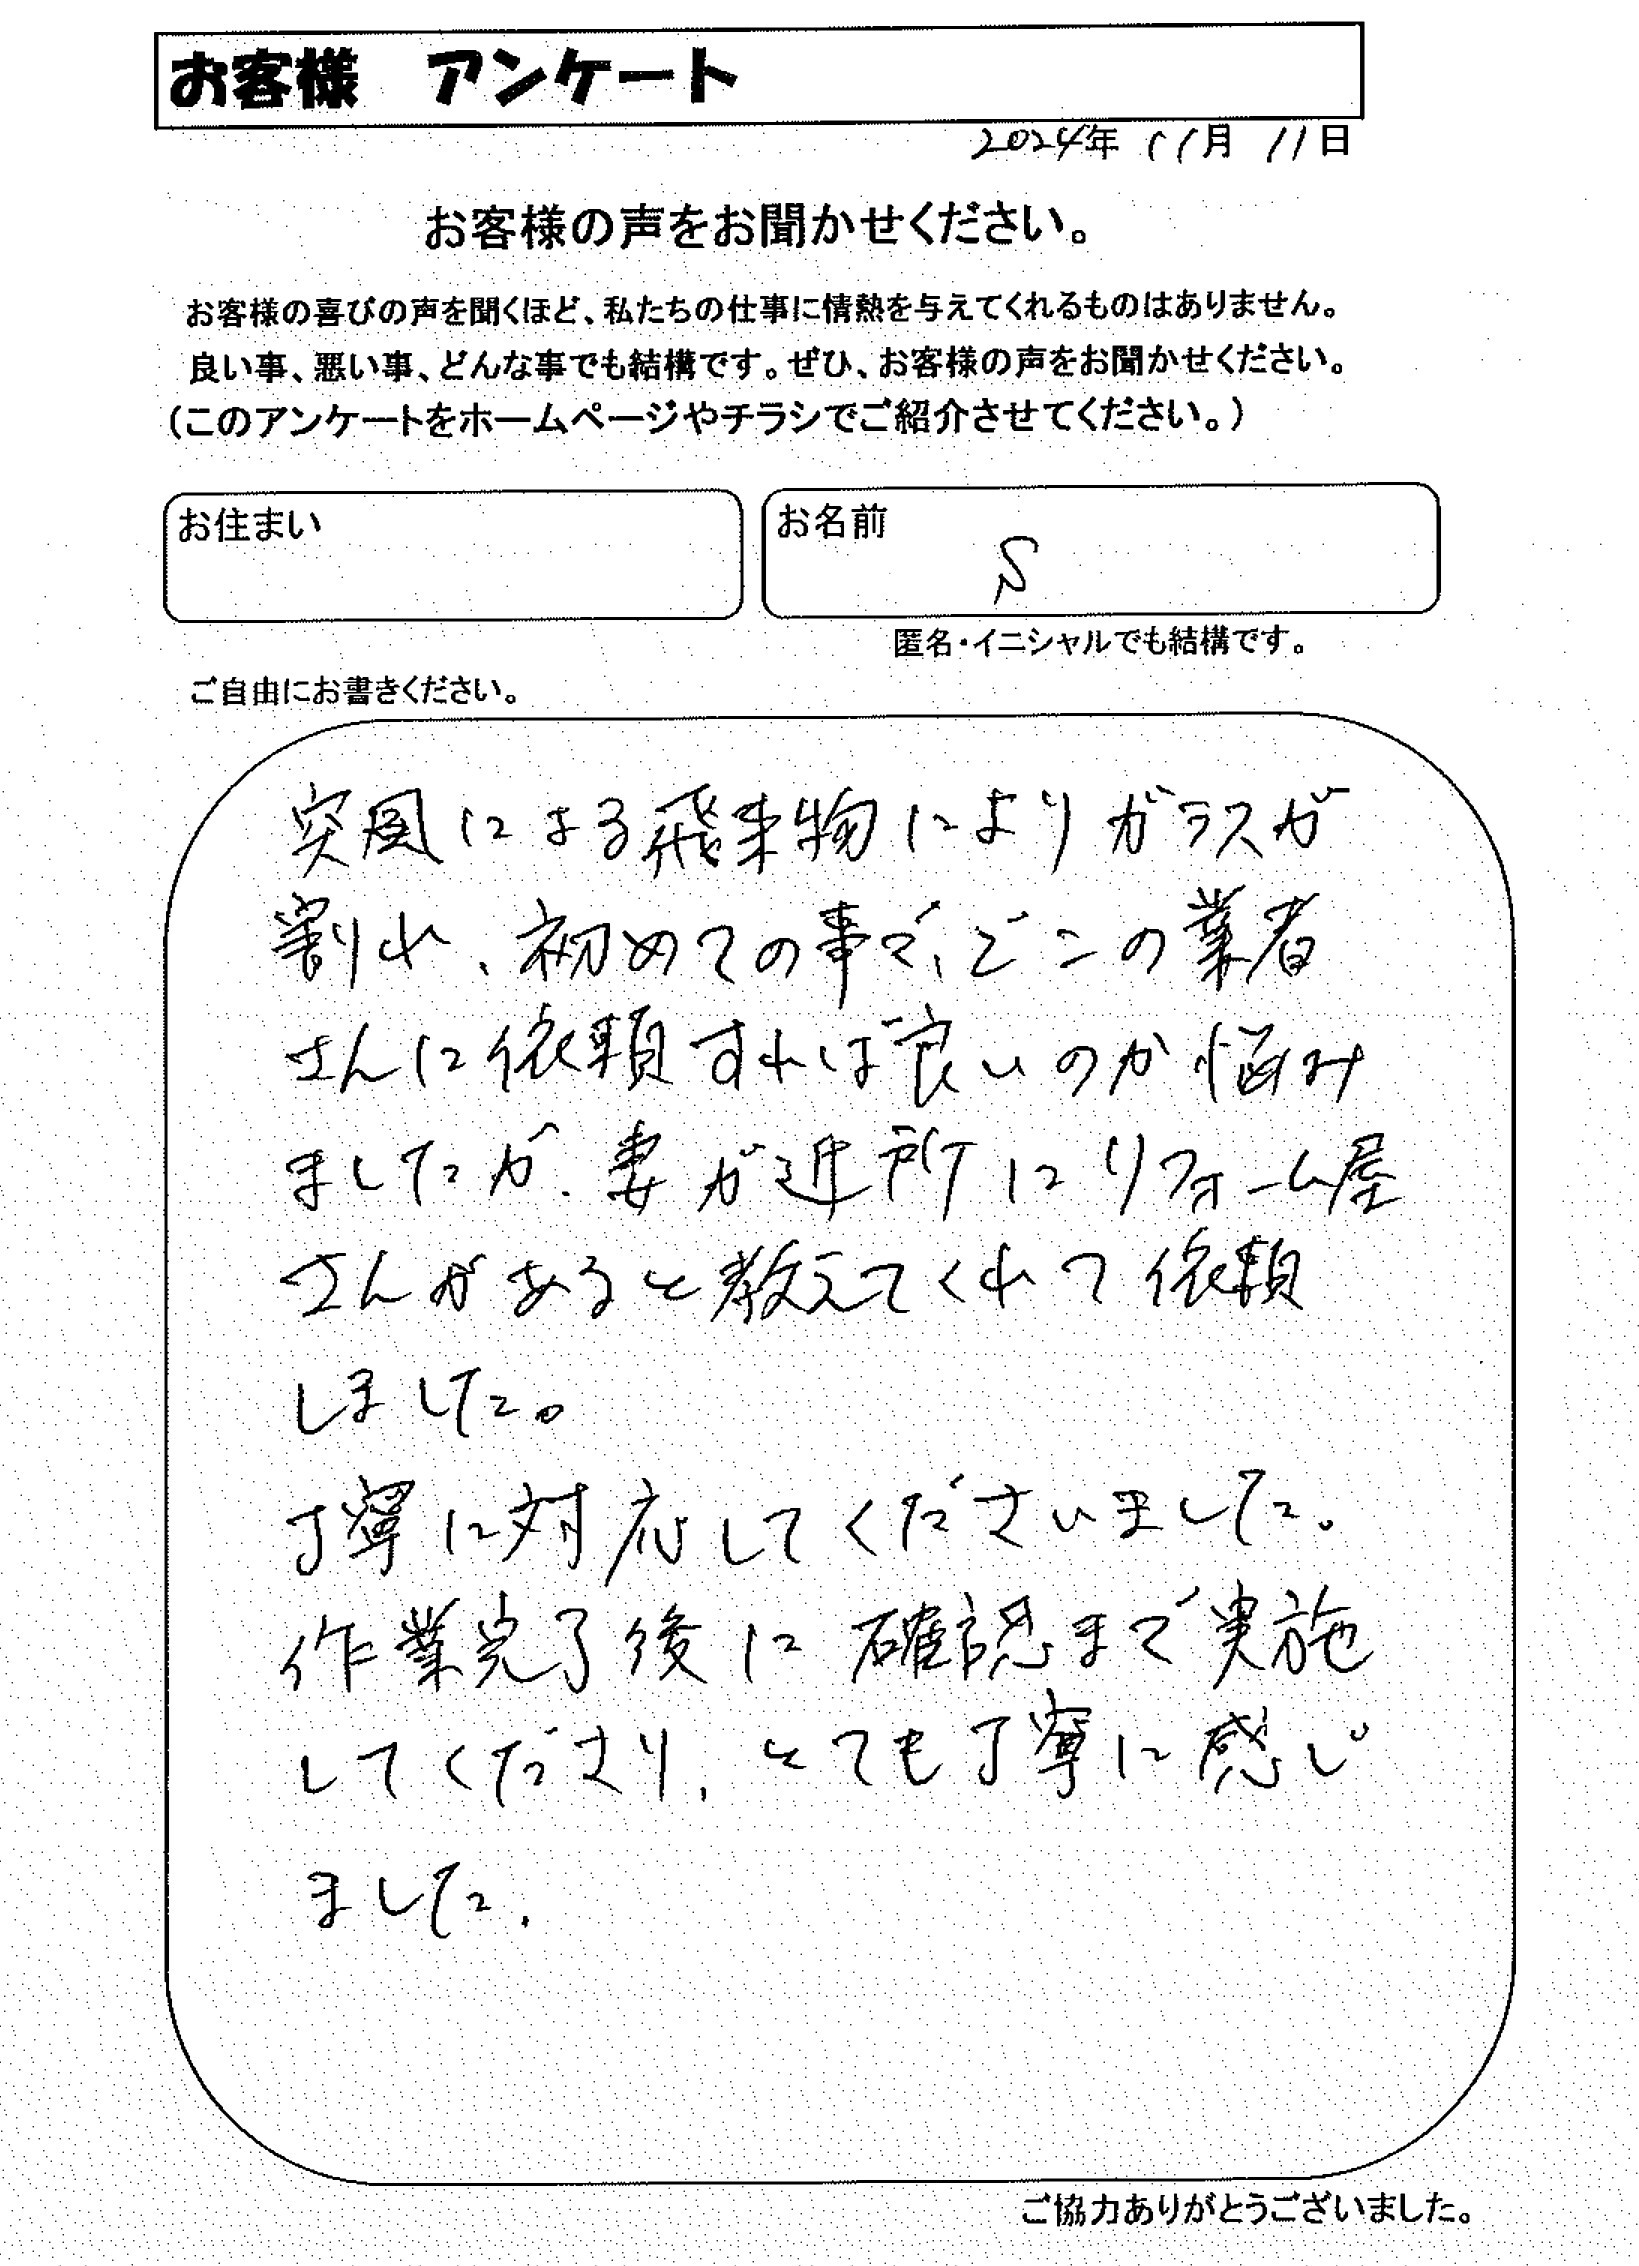 お客様　アンケート
2024年 11月 11日
お客様の声をお聞かせください。
お客様の喜びの声を聞くほど、私たちの仕事に情熱を与えてくれるものはありません。
良い事、悪い事、どんな事でも結構です。ぜひ、お客様の声をお聞かせください。
（このアンケートをホームページやチラシでご紹介させてください。）
お住まい
お名前 S
匿名・イニシャルでも結構です。
ご自由にお書きください。
突風による飛来物によりガラスが
割れ、初めての事で、どこの業者
さんに依頼すれば良いのか悩み
ましたが、妻が近所にリフォーム屋
さんがあると教えてくれて依頼
しました。
丁寧に対応してくださいました。
作業完了後に確認まで実施
してくださり、とても丁寧に感じ
ました。
ご協力ありがとうございました。